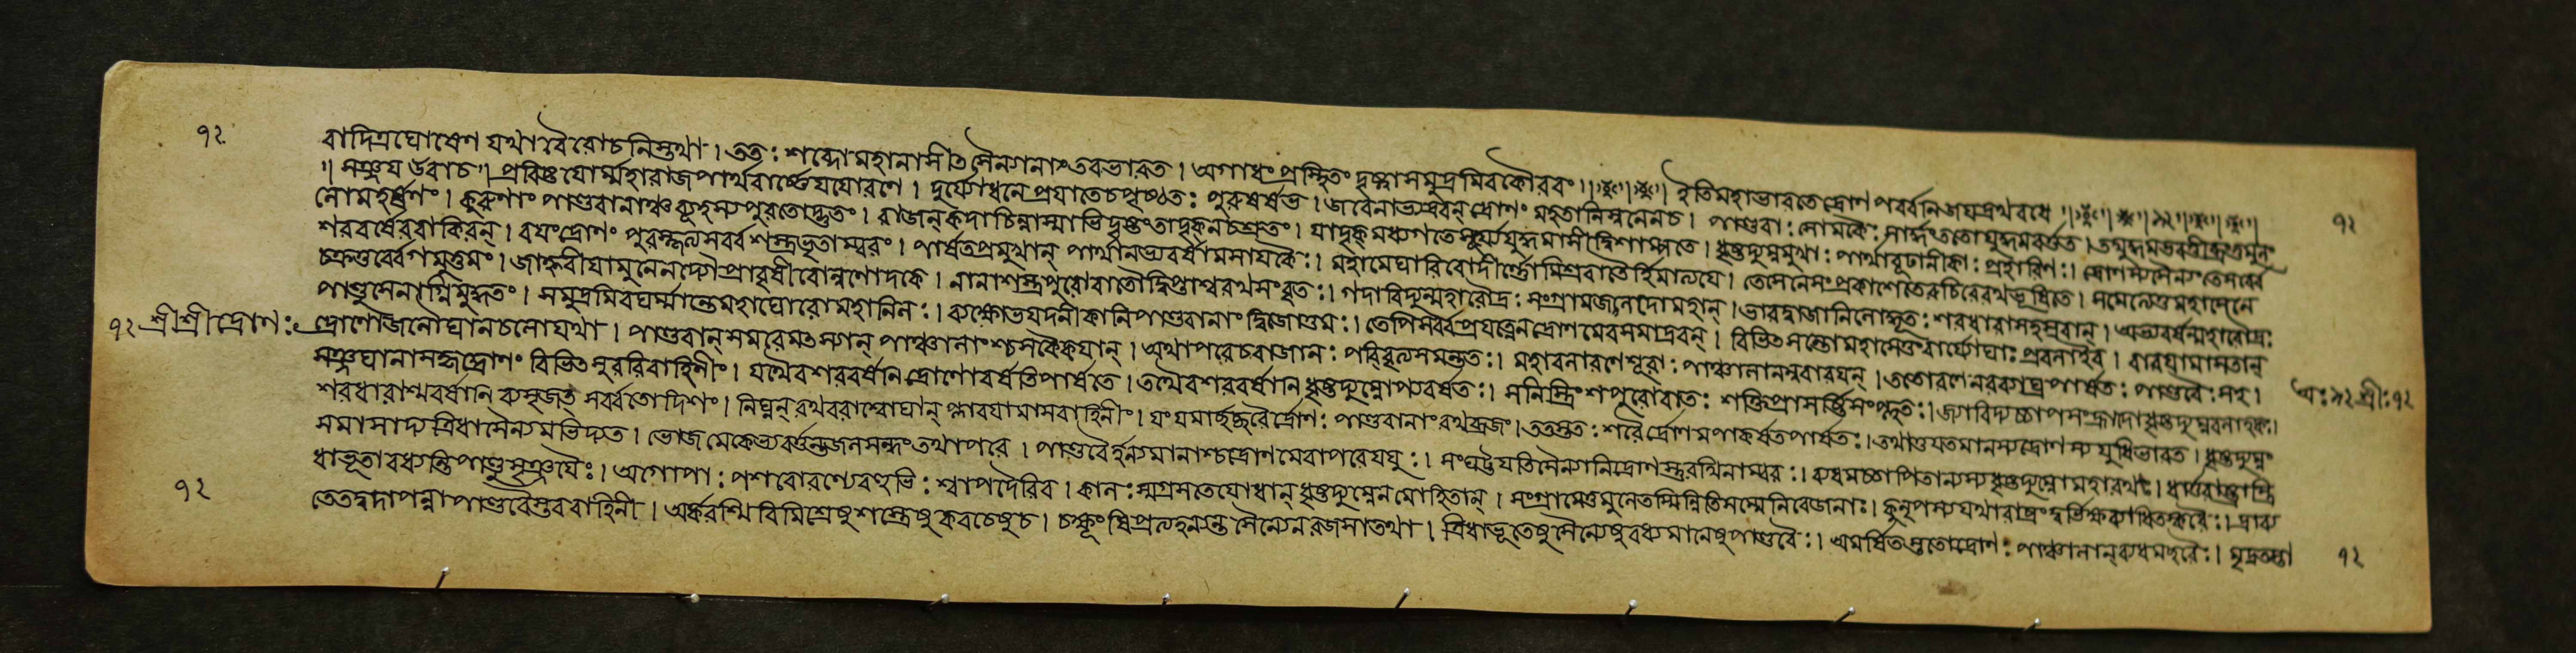 ৭২ বাদিত্রঘোষেণ যথা বৈরোচনিস্তথা । ততঃ শব্দো মহানাসীত্ সৈন্যানাং তবভারত । অগাধং প্রস্থিতং দৃষ্ট্বা সমুদ্রমিবকৌরবং ॥ ইতিমহাভারতে দ্রোণপর্ব্বনি জয়দ্রথবধে ॥ ৯২ ॥
॥ সঞ্জয় উবাচ ॥ প্রবিষ্টযোর্ম্মহারাজপার্থবার্ষ্ণেযযোরণে । দুর্য্যোধনে প্রযাতেচপৃষ্ঠতঃ পুরুষর্ষভ । জবেনাভ্যদ্রবন্ দ্রোণং মহতানিস্বনেনচ । পাণ্ডবাঃ সোমকৈঃ সার্দ্ধং ততোযুদ্ধমবর্ত্তত । তদ্যুদ্ধমভবত্তীব্রং তুমুলং ৭২
লোমহর্ষণং । কুরূণাং পাণ্ডবানাঞ্চ ব্যূহস্য পুরতোদ্ভুতং । রাজন্ কদাচিন্নাস্মাভি দৃষ্টং তাদৃক্ নচশ্রুতং । যাদৃক্ মধ্যগতে সূর্য্যে যুদ্ধমাসীদ্বিশাম্পতে । ধৃষ্টদ্যুম্নমুখাঃ পার্থা ব্যূঢানীকাঃ প্রহারিণঃ । দ্রোণস্য সৈন্যং তে সর্ব্বে
শরবর্ষৈরবাকিরন্ । বযং দ্রোণং পুরস্কৃত্য সর্ব্বশস্ত্রভৃতাম্বরং । পার্ষতপ্রমুখান্ পার্থানভ্যবর্ষামসাযকৈঃ । মহামেঘাবিবোদীর্ণৌ মিশ্রবাতৌ হিমাত্যযে । তে সেনে সংপ্রকাশেতে রুচিরে রথভূষিতে । সমেত্যতু মহাসেনে
চক্রতুর্ব্বেগমুত্তমং । জাহ্নবীযামুনেনদ্যৌ প্রাবৃষীবোল্বণোদকে । নানাশস্ত্রপুরোবাতো দ্বিপাশ্বরথসংবৃতঃ । গদাবিদ্যুন্মহারৌদ্রঃ সংগ্রামজলদোমহান্ । ভারদ্বাজানিলোদ্ধূতঃ শরধারাসহস্রবান্ । অভ্যবর্ষন্মহারৌদ্রঃ
পাণ্ডুসেনাগ্নিমুদ্ধতং । সমুদ্রমিবঘর্ম্মান্তে মহাঘোরো মহানিলঃ । ব্যক্ষোভযদনীকানি পাণ্ডবানাং দ্বিজোত্তমঃ । তেপি সর্ব্বপ্রযত্নেন দ্রোণমেবসমাদ্রবন্ । বিভিত্সন্তো মহাসেতুং বার্য্যোঘাঃ প্রবলাইব । বারযামাসতান্
৭২ শ্রীশ্রীদ্রোণঃ দ্রোণো জলৌঘানচলোযথা । পাণ্ডবান্ সমরে মত্স্যান্ পাঞ্চালাংশ্চ সকৈকযান্ । অথাপরেচরাজানঃ পরিবৃত্য সমন্ততঃ । মহাবলারণেশূরাঃ পাঞ্চালানন্ববারযন্ । ততোরণে নরব্যাঘ্র পার্ষতঃ পাণ্ডবৈঃ সহ ।
সঞ্জঘানাসকৃদ্দ্রোণং বিভিত্সুররিবাহিনীং । যথৈব শরবর্ষানি দ্রোণোবর্ষতি পার্ষতে । তথৈব শরবর্ষানি ধৃষ্টদ্যুম্নোপ্যবর্ষত । সনিস্ত্রিংশপুরোবাতঃ শক্তিপ্রাসর্ষ্টিসংবৃতঃ । জ্যাবিদ্যুচ্চাপসংহ্রাদো ধৃষ্টদ্যুম্নবলাহকঃ । অঃ ৯২ শ্রীঃ ৭২
শরধারাশ্মবর্ষানি ব্যসৃজত্ সর্ব্বতোদিশং । নিঘ্নন্ রথবরাশ্বৌঘান্ প্লাবযামাস বাহিনীং । যং যমার্চ্ছচ্ছরৈর্দ্রোণঃ পাণ্ডবানাং রথব্রজং । ততস্ততঃ শরৈর্দ্রোণমপাকর্ষত পার্ষতঃ । তথাতুযতমানস্য দ্রোণস্য যুধিভারত । ধৃষ্টদ্যুম্নং
সমাসাদ্য ত্রিধাসৈন্যমভিদ্যত । ভোজমেকেভ্যবর্ত্তন্ত জলসন্ধং তথাপরে । পাণ্ডবৈর্হন্যমানাশ্চ দ্রোণমেবাপরেযযুঃ । সংঘট্টযতি সৈন্যানি দ্রোণস্তুরথিনাম্বরঃ । ব্যধমচ্চাপিতান্যস্য ধৃষ্টদ্যুম্নো মহারথঃ । ধার্ত্তরাষ্ট্রাস্ত্রি
ধাভূতা বধ্যন্তে পাণ্ডুসৃঞ্জযৈঃ । অগোপাঃ পশবোরণ্যে বহুভিঃ শ্বাপদৈরিব । কালঃ স্মগ্রসতেযোধান্ ধৃষ্টদ্যুম্নেন মোহিতান্ । সংগ্রামেতুমুলে তস্মিন্নিতি সম্মেনিরেজনাঃ । কুনৃপস্য যথারাষ্ট্রং দুর্ভিক্ষব্যাধিতস্করৈঃ । দ্রাব্য
৭২ তেতদ্বদাপন্না পাণ্ডবৈস্তববাহিনী । অর্করশ্মিবিমিশ্রেষু শস্ত্রেষু কবচেষুচ । চক্ষূংষি প্রত্যহন্যন্ত সৈন্যেন রজসাতথা । ত্রিধাভূতেষু সৈন্যেষু বধ্যমানেষু পাণ্ডবৈঃ । অমর্ষিতস্ততো দ্রোণঃ পাঞ্চালান্ ব্যধমচ্ছরৈঃ । মৃদ্নতস্তা ৭২